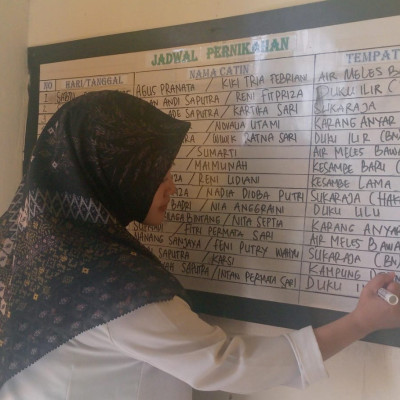 JADWAL PERNIKAHAN
NO HARI/TANGGAL NAMA CATIN TEMPAT
1 AGUS PRANATA / KIKI TRIA FEBRIANI AIR MELES B
2 ANDI SAPUTRA / RENI FITDRIZA DUKU ILIR (
ADE SAPUTRA / KARTIKA SARI SUKARAJA
/ NOVALIA UTAMI KARANG ANYAR
/ WIWIK RATNA SARI DUKU ILIR (BA
/ SUMARTI AIR MELES BAWA
/ MAIMUNAH KESAMBE BARU (
/ RENI LUDIANI KESAMBE LAMA
/ NADIA DIOBA PUTRI SUKARAJA (HAK
BADRI / NIA ANGGRAINI DUKU ULU
BINTANG / NITA SEPTIA KARANG ANYAR
/ FITRI PERMATA SARI AIR MELES BAWA
NANANG SANJAYA / FENI PUTRY WAHYU SUKARAJA (BA
/ KARSI KAMPUNG
SAPUTRA / INTAN PERMATA SARI DUKU